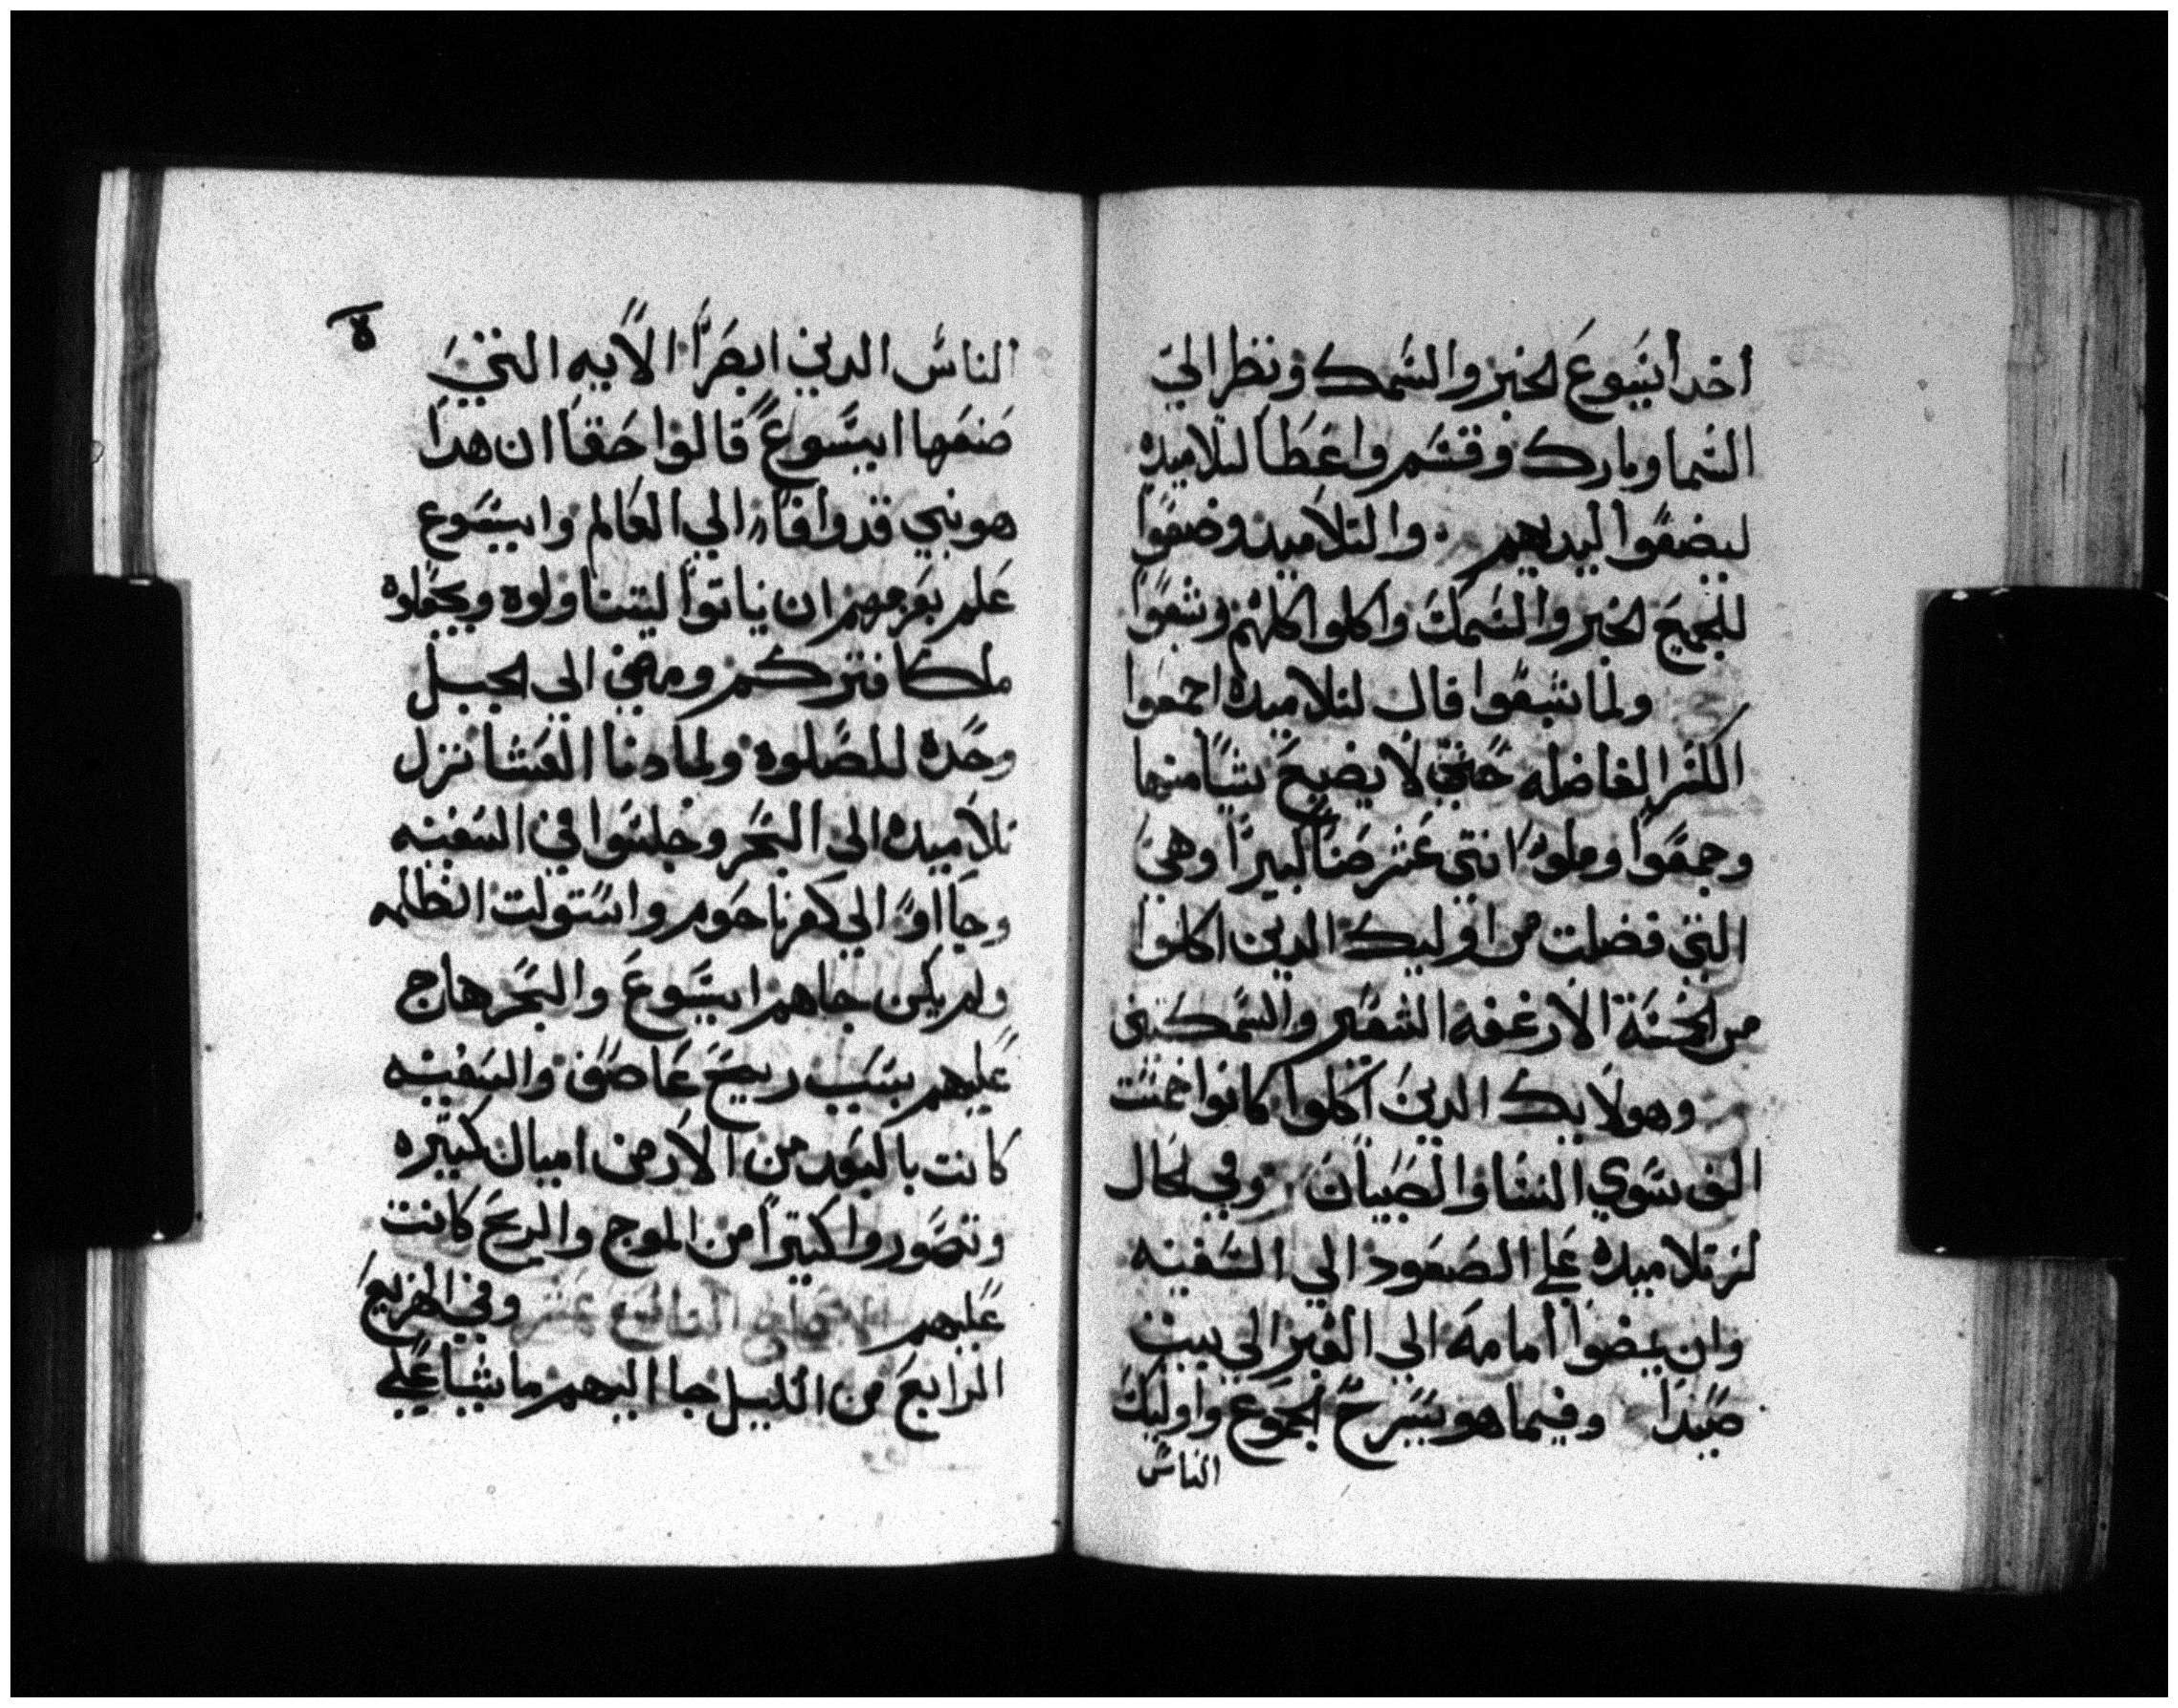 اخد ايسوع الخبز والسمك ونظر الي
السما وبارك وقسم واعطا لتلاميده
ليضعوا ليديهم والتلاميد وضعوا
للجميع الخبز والسمك واكلوا كلهم وشبعوا
ولما شبعوا قال لتلاميده اجمعوا
الكسر الفاضله حتي لا يضيع شيا منها
وجمعوا وملوا اتني عشر صنا كبيرا وهي
التي فضلت من اوليك الدين اكلوا
من الخمسة الارغفه الشعير والسمكتين
وهولايك الدين اكلوا كانوا خمست
الف سوي النسا والصبيان وفي الحال
لز تلاميده علي الصعود الي السفينه
وان يمضوا امامه الي العبر الي بيت
صيدا وفيما هو يسرح الجموع واوليك
الناس
ة
الناس الدين ابصروا الايه التي
صنعها ايسوع قالوا حقا ان هدا
هو نبي قد وافا الي العالم وايسوع
علم بعزمهم ان ياتوا ليتناولوه ويجعلوه
ملكا فتركهم ومضي الي الجبل
وحده للصلوه ولما دنا العشا نزل
تلاميده الي البحر وجلسوا في السفينه
وجااوا الي كفرناحوم واستولت الظلمه
ولم يكن جاهم ايسوع والبحر هاج
عليهم بسبب ريح عاصف والسفينه
كانت بالبعد من الارض اميال كتيره
وتصوروا كتيرا من الموج والريح كانت
عليهم الاصحاح التاسع عشر وفي الهزيع
الرابع من الليل جا اليهم ماشيا علي